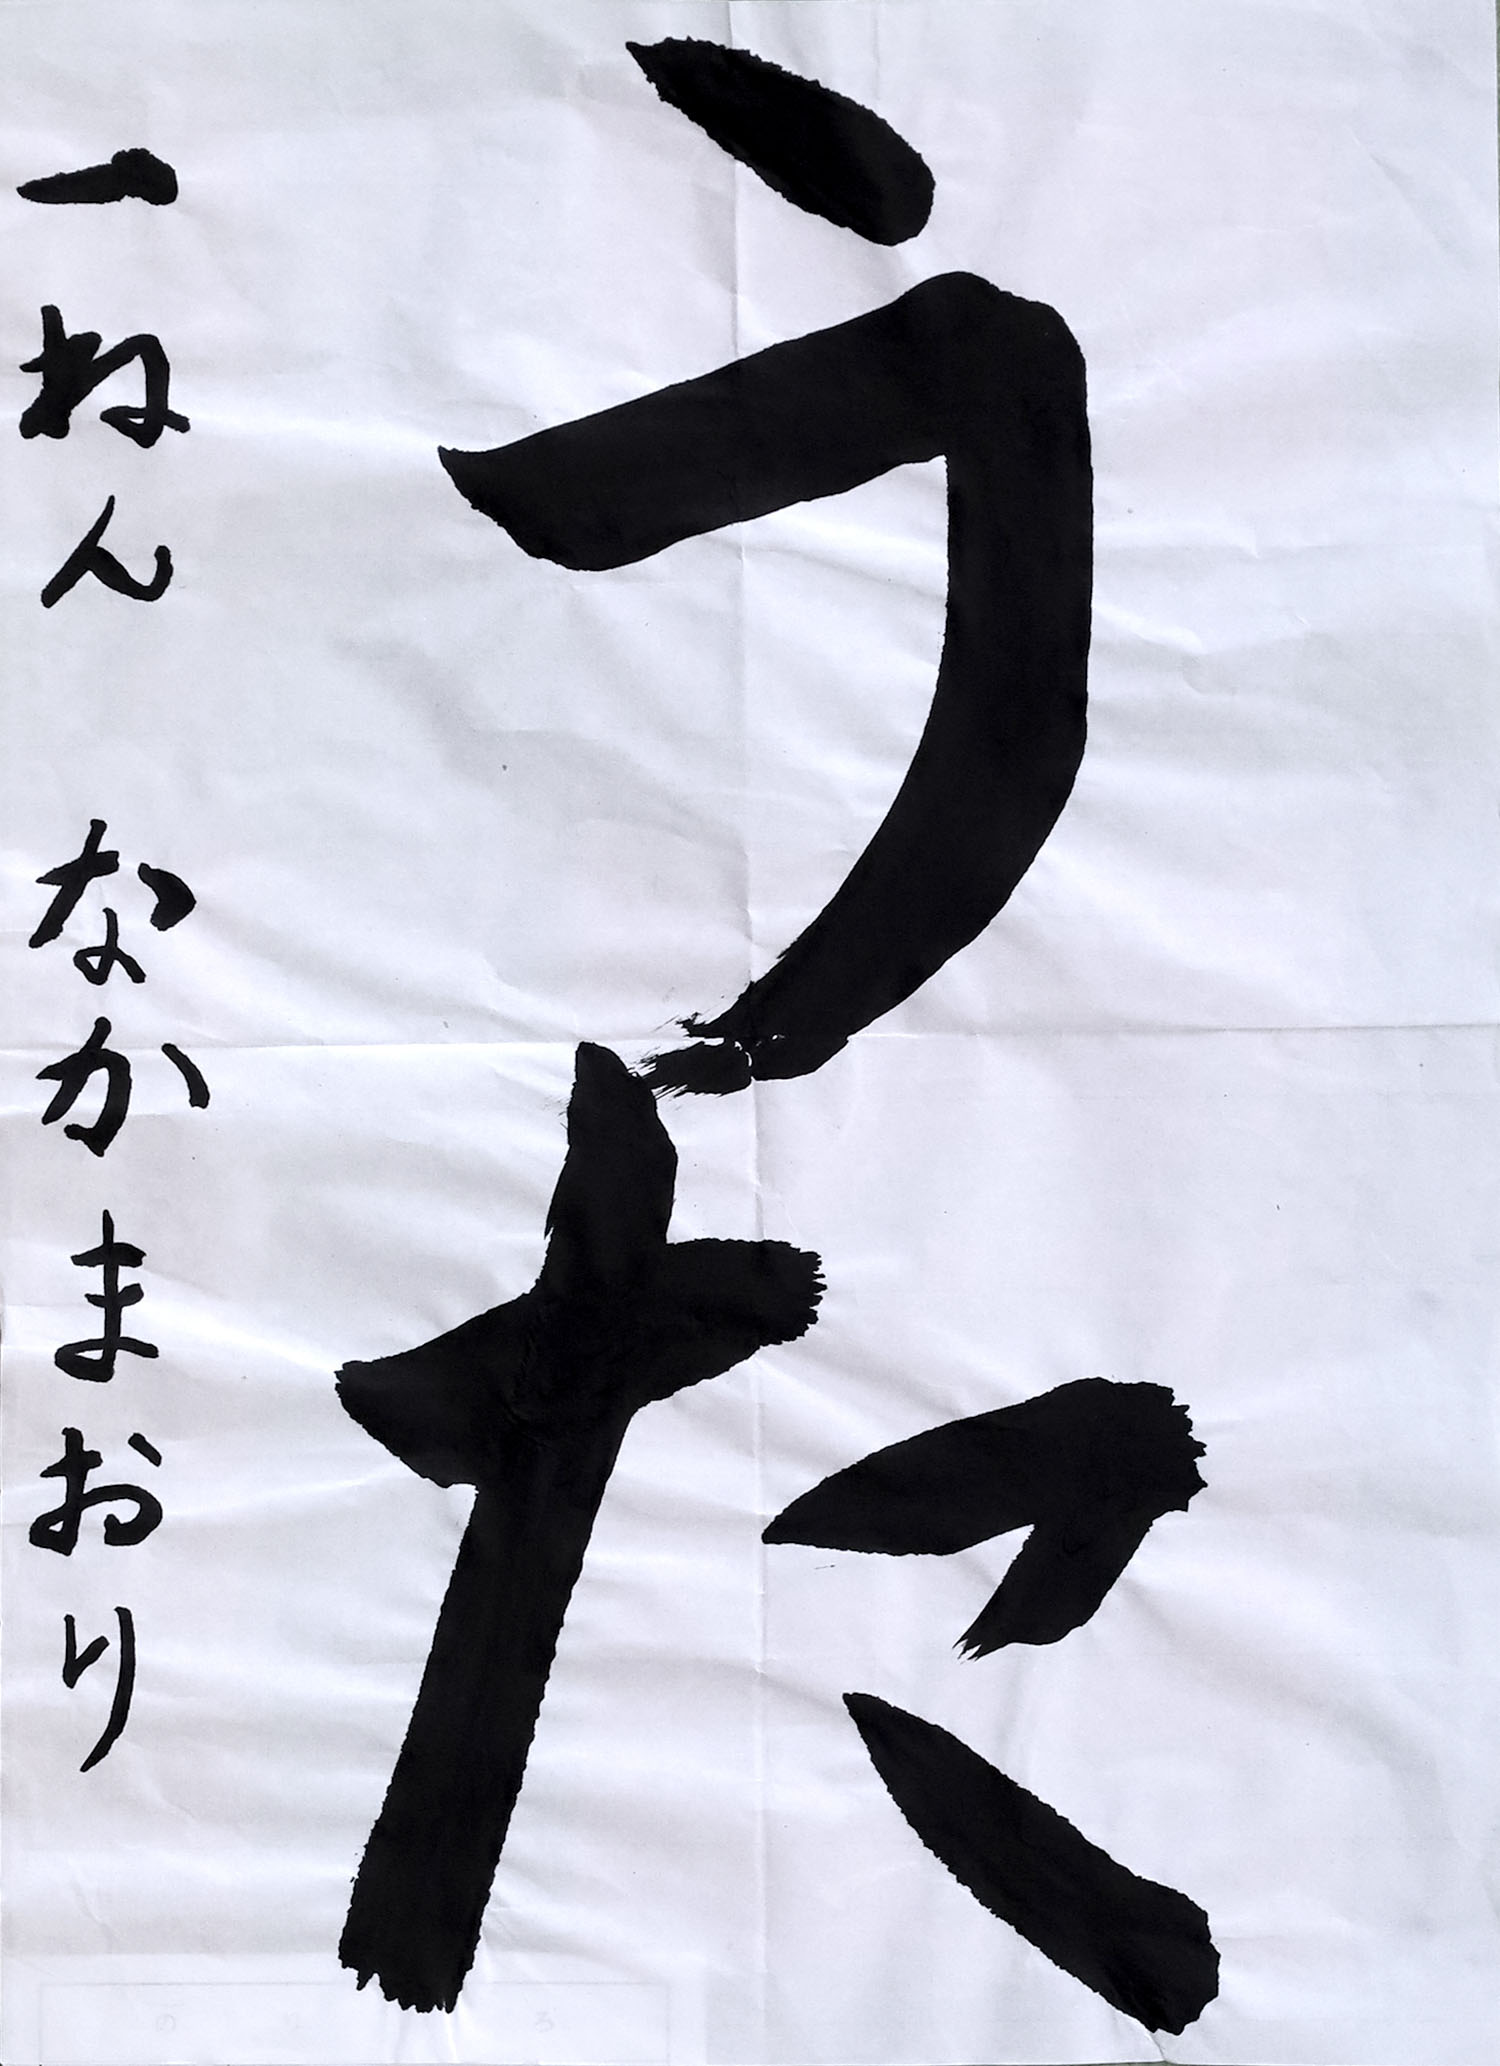 うた
一ねん なかまおり